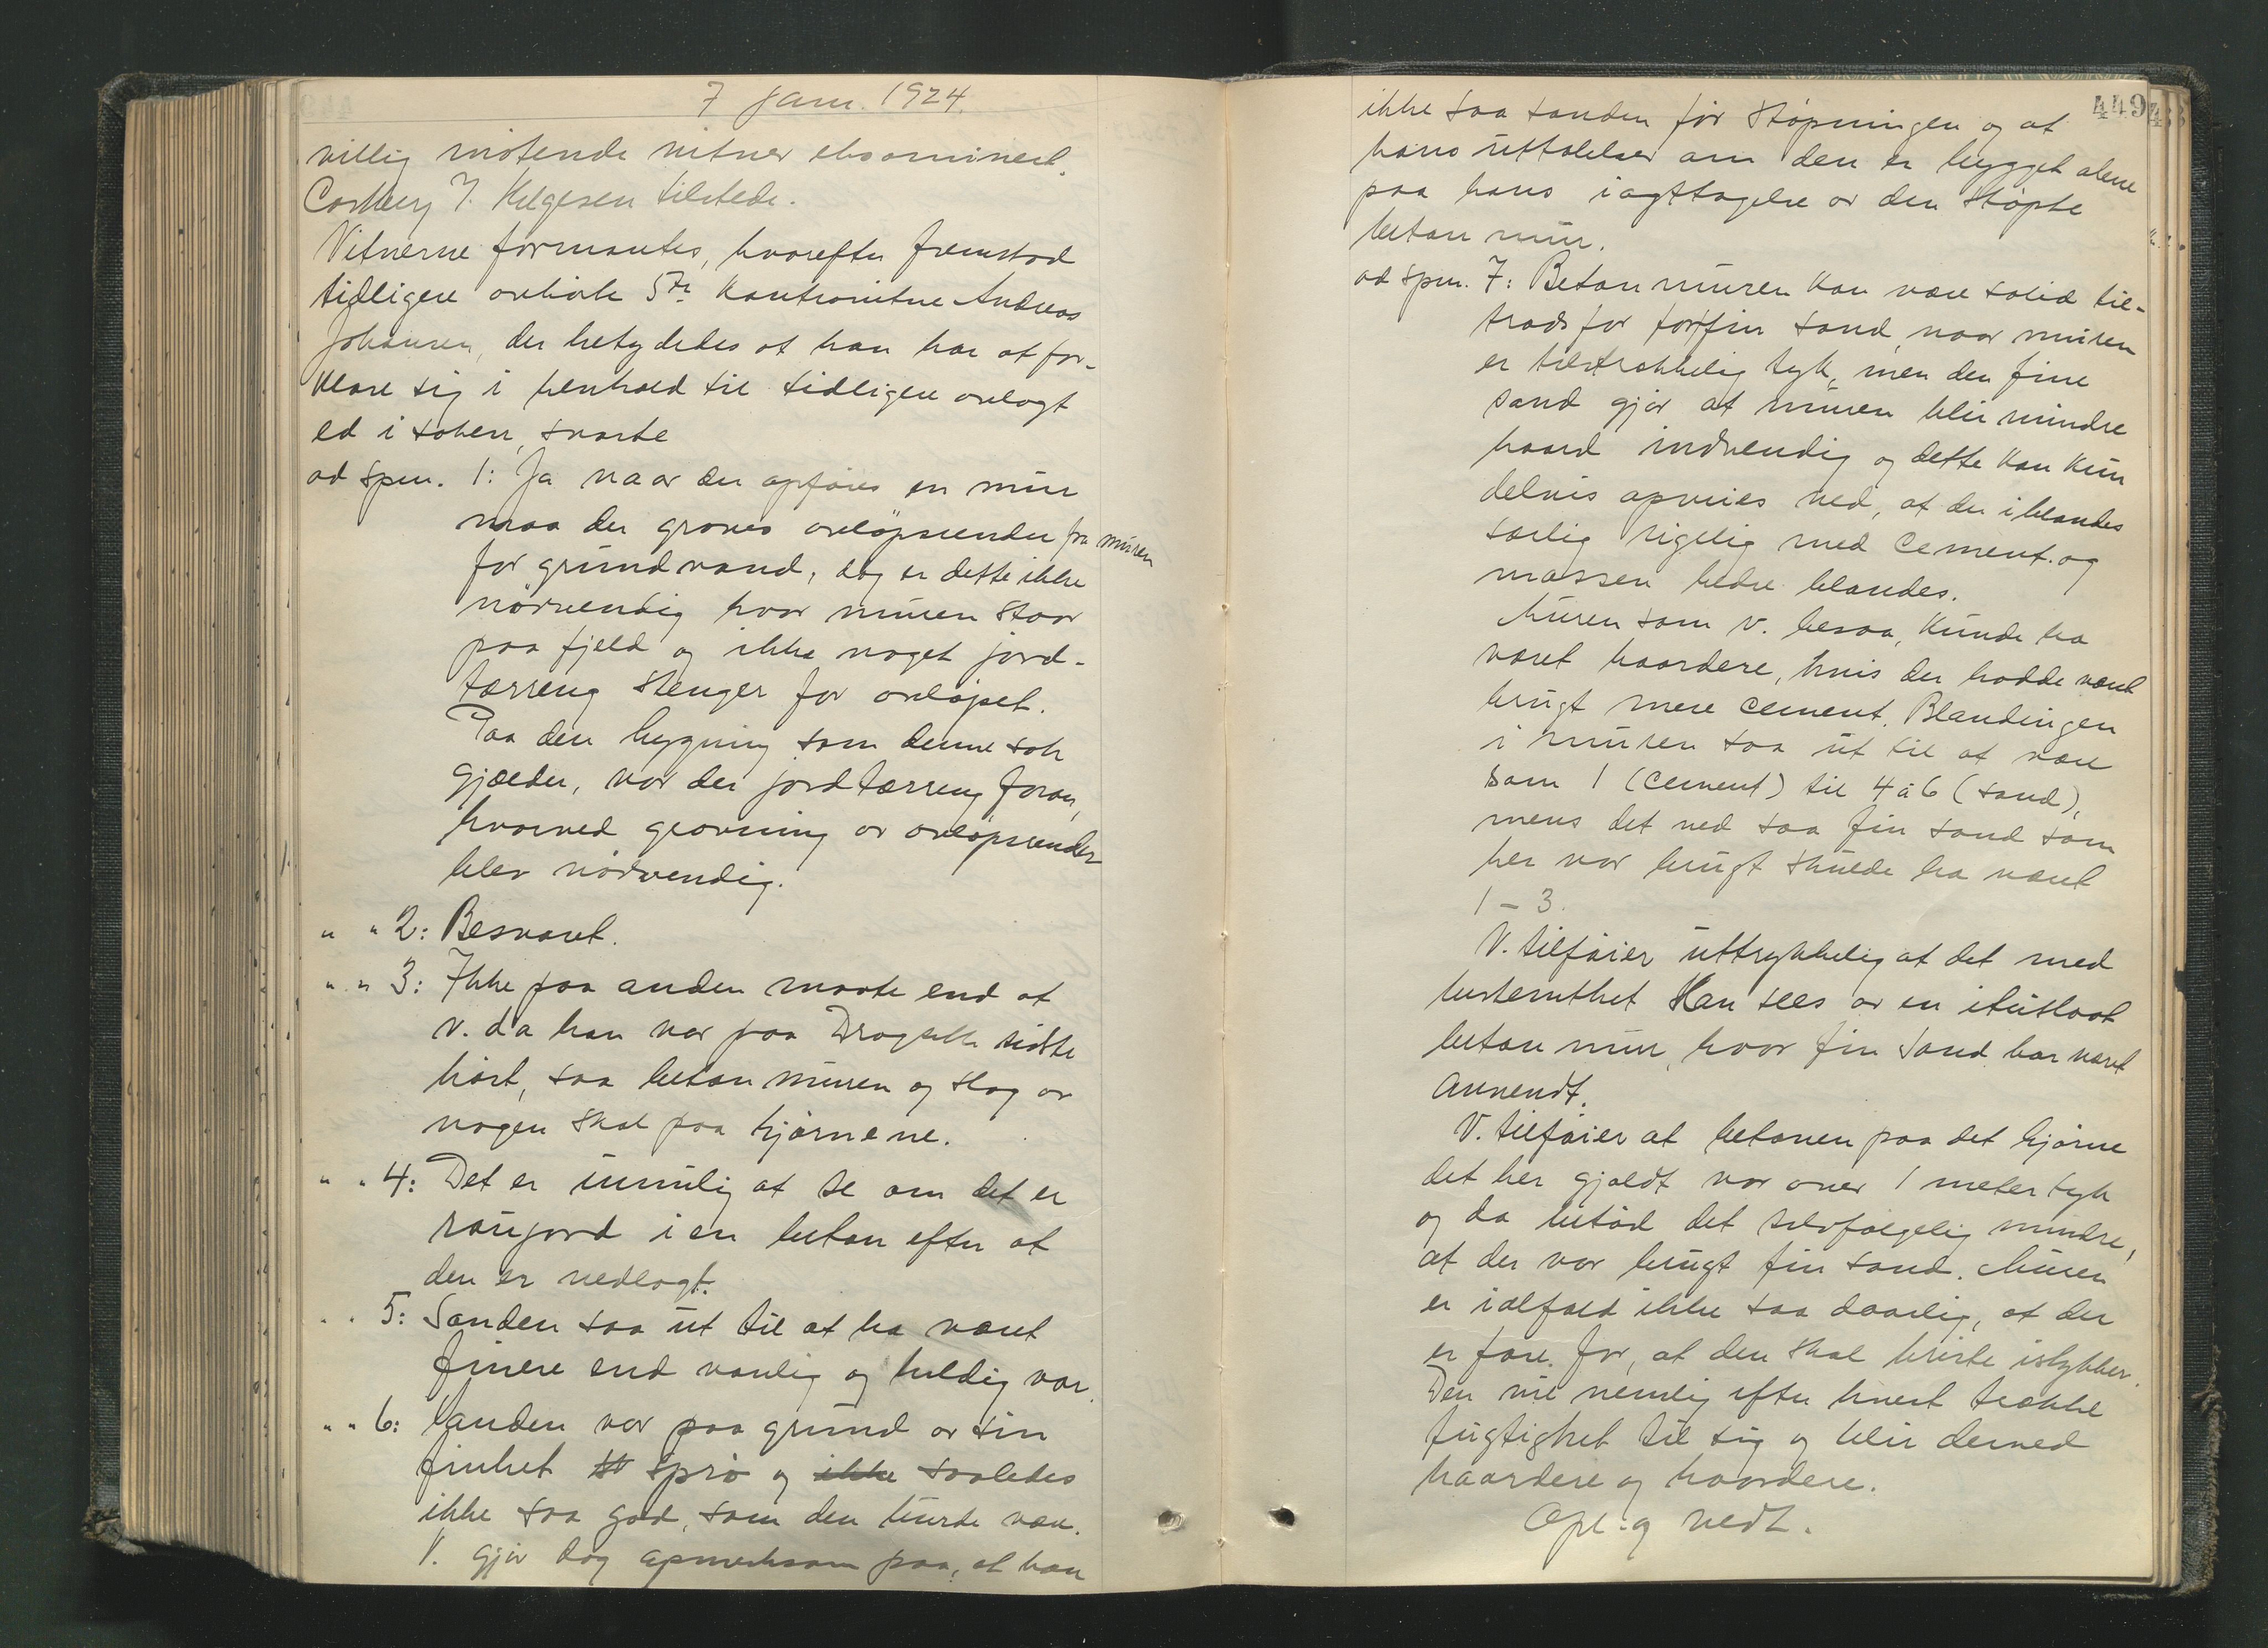 7 Janr. 1924.
villig møtende vitner eksaminert.
J. Helgesen tilstede.
Vitnerne formantes, hvorefter fremstod
tidligere avhørte 5te kontravitne Andreas
Johansen, der betydedes at han har at for-
klare sig i henhold til tidligere avlagt
ed i saken, svarte
ad spm. 1: Ja naar der opføres en mur
maa der graves avløpsrender fra muren
for grundvand, dog er dette ikke
nødvendig hvor muren staar
paa fjeld og ikke noget jord-
tærreng stenger for avløpet.
Paa den bygning som denne sak
gjælder, var der jordtærreng foran,
hvorved gravning av avløpsrender
blev nødvendig.
" " 2: Besvaret.
" " 3: Ikke paa anden maate end at
v. da han var paa sidste
høst, saa beton muren og slog av
nogen skal paa hjørnene.
" " 4: Det er umulig at se om det er
raujord i en beton efter at
den er nedlagt.
" " 5: Sanden saa ut til at ha været
finere end vanlig og heldig var.
" " 6: Sanden var paa grund av sin
finhet st sprø og ikke saaledes
ikke saa god, som den burde være.
V. gjør dog opmerksom paa, at han
449
ikke saa sanden før støpningen og at
hans uttalelser om den er bygget alene
paa hans iagttagelse av den støpte
beton mur.
ad spm. 7: Beton muren kan være solid til-
trods for forfin sand, naar muren
er tilstrækkelig tyk, men den fine
sand gjør at muren blir mindre
haard indvendig og dette kan kun
delvis opveies ved, at der iblandes
særlig rigelig med cement og
massen bedre blandes.
Muren som v. besaa, kunde ha
været haardere, hvis der hadde været
brugt mere cement. Blandingen
i muren saa ut til at være
som 1 (cement) til 4 à 6 (sand),
mens det ved saa fin sand som
her var brugt skulde ha været
1 – 3.
V. tilføier uttrykkelig at det med
bestemthet kan sees av en itutslaat
beton mur, hvor fin sand har været
anvendt.
V. tilføier at betonen paa det hjørne
det her gjaldt var over 1 meter tyk
og da betød det selvfølgelig mindre,
at der var brugt fin sand. Muren
er ialfald ikke saa daarlig, at der
er fare for, at den skal briste istykker.
Den vil nemlig efter hvert trække
fugtighet til sig og blir derved
haardere og haardere.
Opl. og vedt.